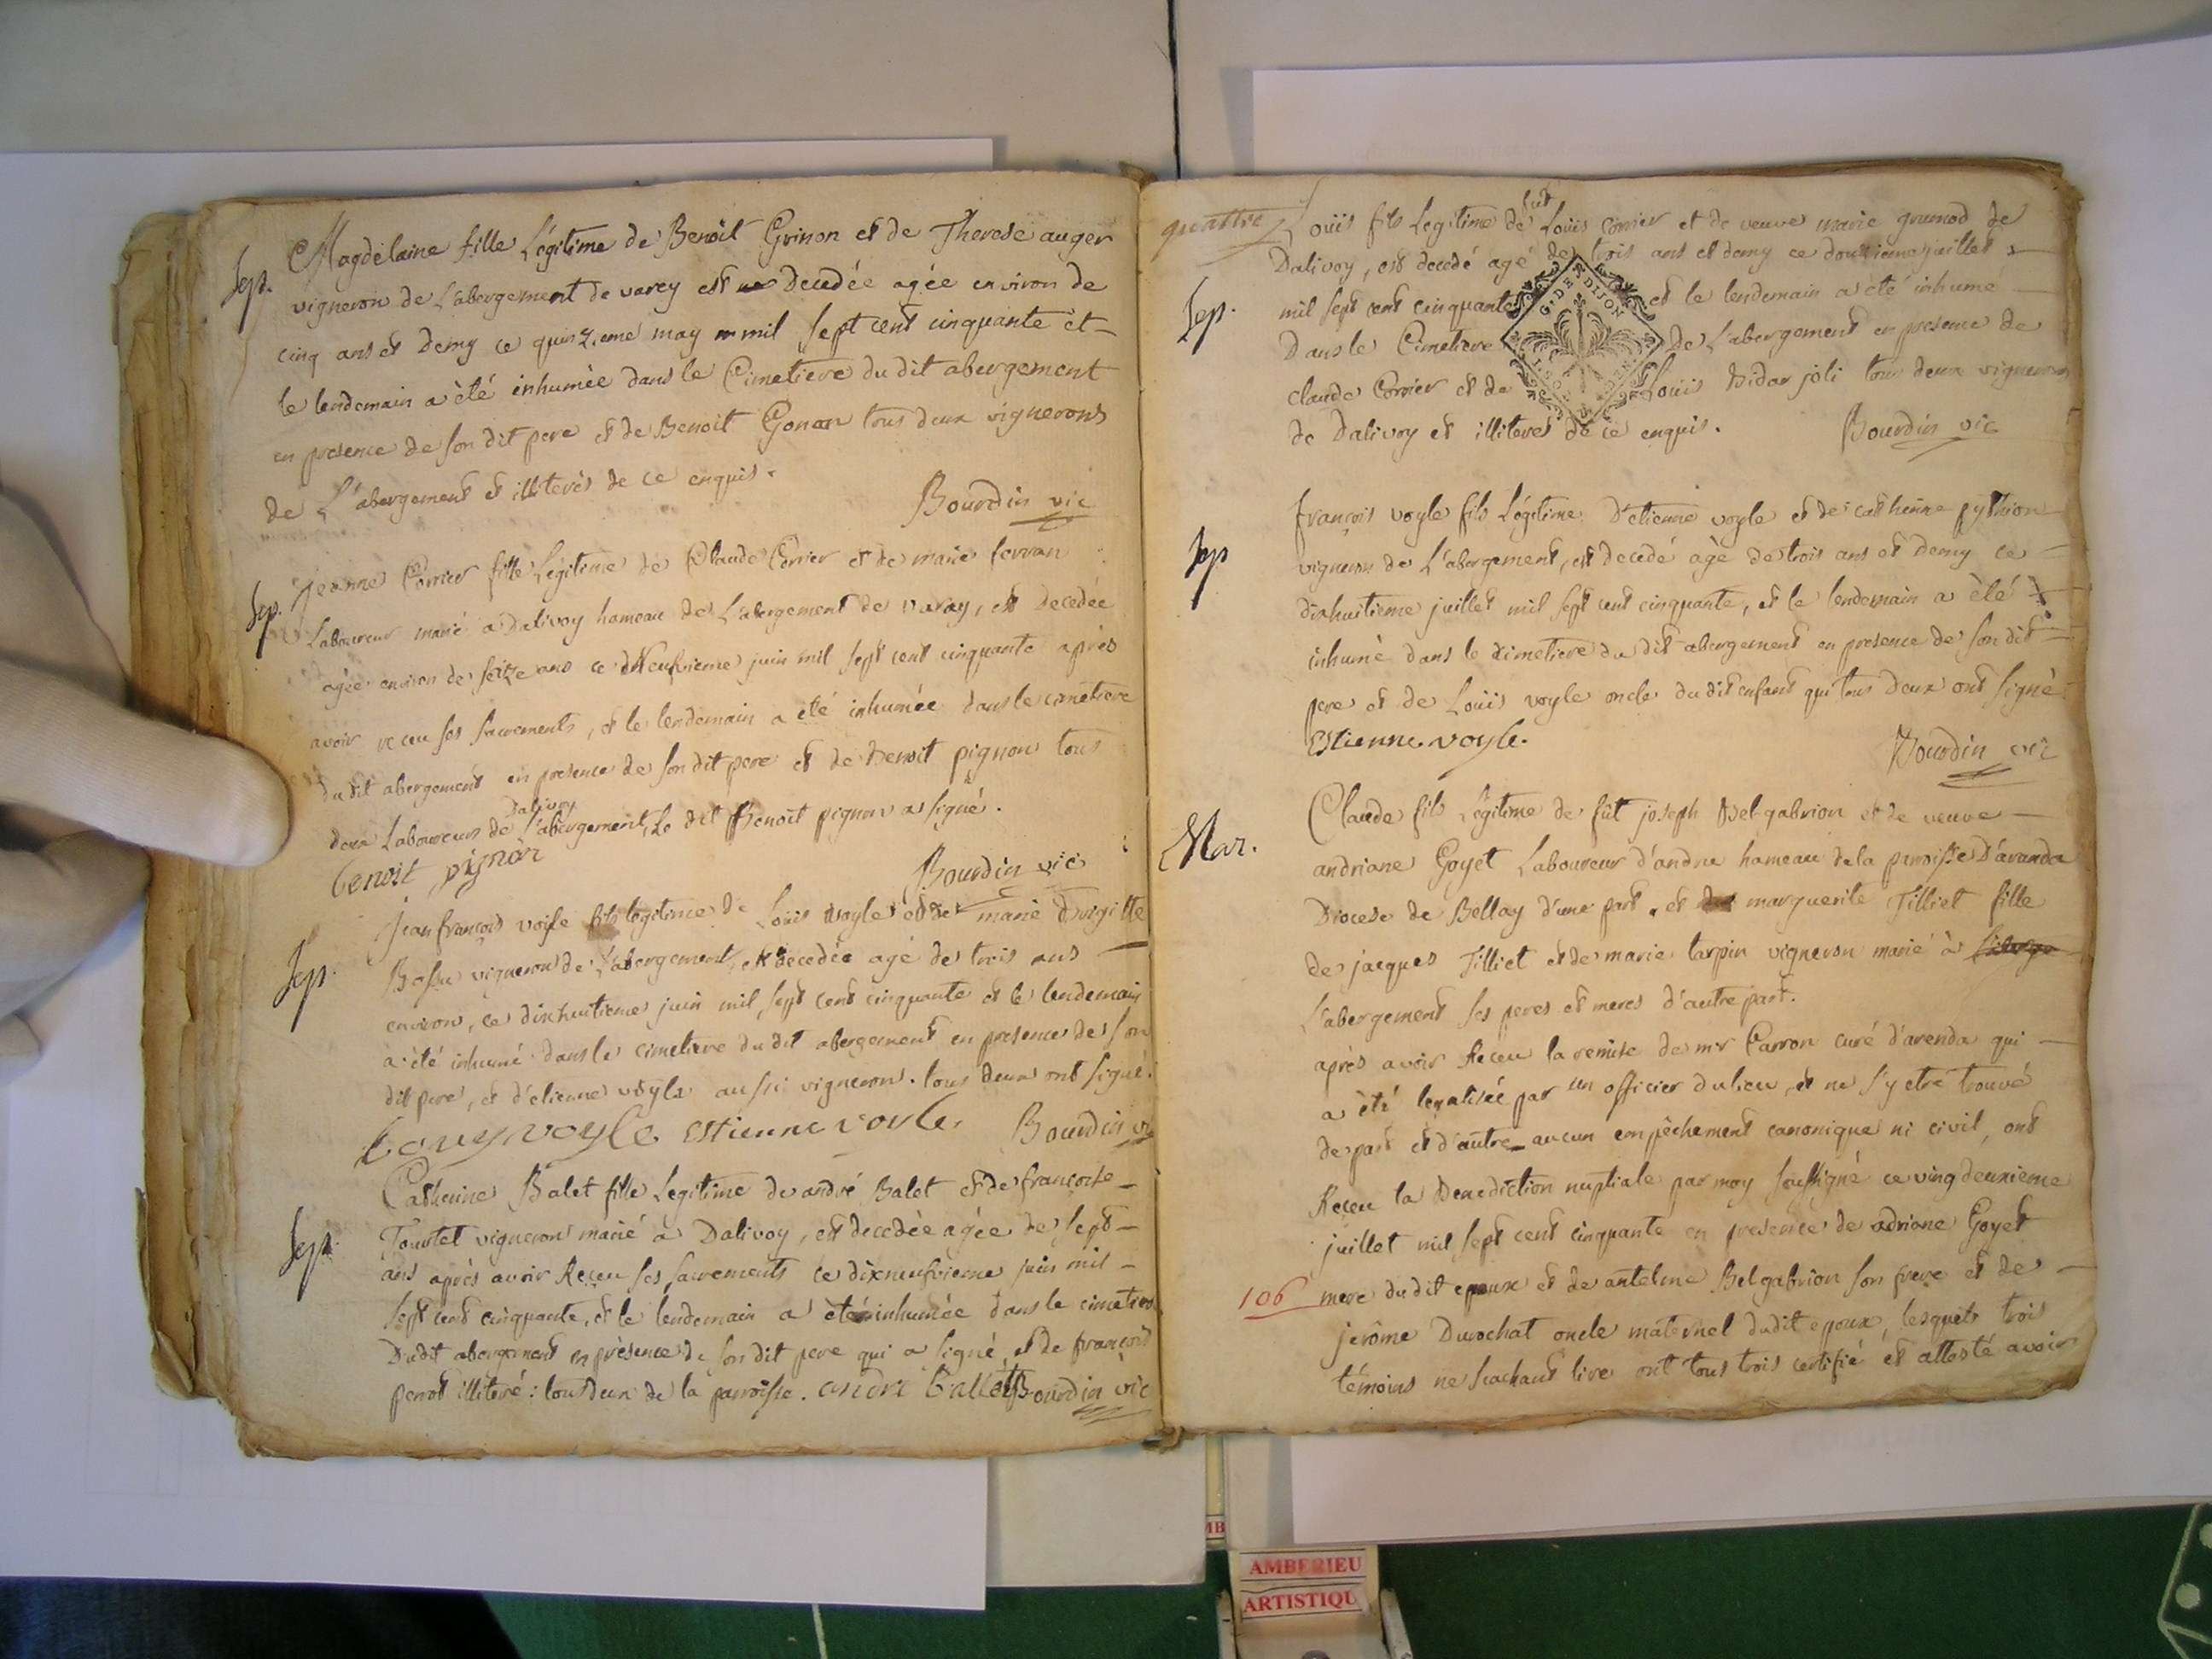 Sep. Magdelaine fille Légitime de Benoit Grinon et de Therese auger
vigneron de L'abergement de varey est decedée agée environ de
cinq ans et demy ce quinzieme may mil sept cent cinquante et
le lendemain a été inhumée dans le Cimetiere du dit abergement
en presence de son dit pere et de Benoit Gonan tous deux vignerons
de L'abergement et illiterés de ce enquis.
Bourdin vic
Sep. jeanne Corrier fille Legitime de Claude Corrier et de marie ferran
Laboureur marié a Dalivoy hameau de L'abergement de varay, est decedée
agée environ de seize ans ce juin mil sept cent cinquante après
avoir receu ses sacrements, et le lendemain a été inhumée dans le cimetiere
du dit abergement en presence de son dit pere et de Benoit pignon tous
Dalivoy
deux Laboureurs de L'abergement, Le dit Benoit pignon a signé.
benoit pignon
Bourdin vic
Sep. jean françois voyle fils legitime de Louis voyle et de marie Brigitte
vigneron de L'abergement, est decedée agé de trois ans
environ, ce dixhuitieme juin mil sept cent cinquante et le lendemain
a été inhumé dans le cimetiere du dit abergement en presence de son
dit pere, et d'etienne voyle aussi vigneron. tous deux ont signé.
Louys voyle Estienne voyle. Bourdin vic
Sep. Catherine Balet fille Legitime de andré Balet et de francoise
Tourtel vigneron marié à Dalivoy, est decedée agée de sept
ans après avoir Receu ses sacrements ce dixneufvieme juin mil
sept cent cinquante, et le lendemain a été inhumée dans le cimetiere
Dudit abergement en présence de son dit pere qui a signé, et de françois
penot illiteré: tous deux de la parroisse. andre ballet Bourdin vic
quattre
Louis fils Legitime de fut Louis Corrier et de veuve marie grumod de
Dalivoy, est decedé agé de trois ans et demy ce douzieme juillet
Sep. mil sept cent cinquante et le lendemain a été inhume
G. DE DIJON
Dans le Cimetiere de L'abergement en presence de
claude Corrier et de Louis Bidar joli tous deux vignerons
de Dalivoy et illiterés de ce enquis. Bourdin vic
françois voyle fils Légitime D'etienne voyle et de catherine pythion
Sep vigneron de L'abergement, est decedé agé de trois ans et demy ce
dixhuitieme juillet mil sept cent cinquante, et le lendemain a été
inhumé dans le cimetiere du dit abergement en presence de son dit
pere et de Louis voyle oncle du dit enfant qui tous deux ont signé
Estienne voyle.
Bourdin vic
Mar. Claude fils Légitime de fût joseph Belgabrion et de veuve
andriane Goyet Laboureur d'andne hameau de la paroisse D'aranda
Diocese de Bellay d'une part, et marguerite Tilliet fille
de jacques Tilliet et de marie tarpin vigneron marié à
L'abergement ses peres et meres d'autre part.
après avoir Receu la remise de mr Carron curé d'arenda qui
a été legalisée par un officier du lieu, et ne s'y etre trouvé
de part et d'autre aucun empêchement canonique ni civil, ont
Receu la Benediction nuptiale par moy soussigné ce vingdeuxieme
juillet mil sept cent cinquante en presence de adriane Goyet
106 mere du dit epoux et de antelme Belgabrion son frere et de
jerôme Durochat oncle maternel dudit epoux, lesquels trois
témoins ne scachant lire ont tous trois certifié et attesté avoir
AMBERIEU
ARTISTIQU